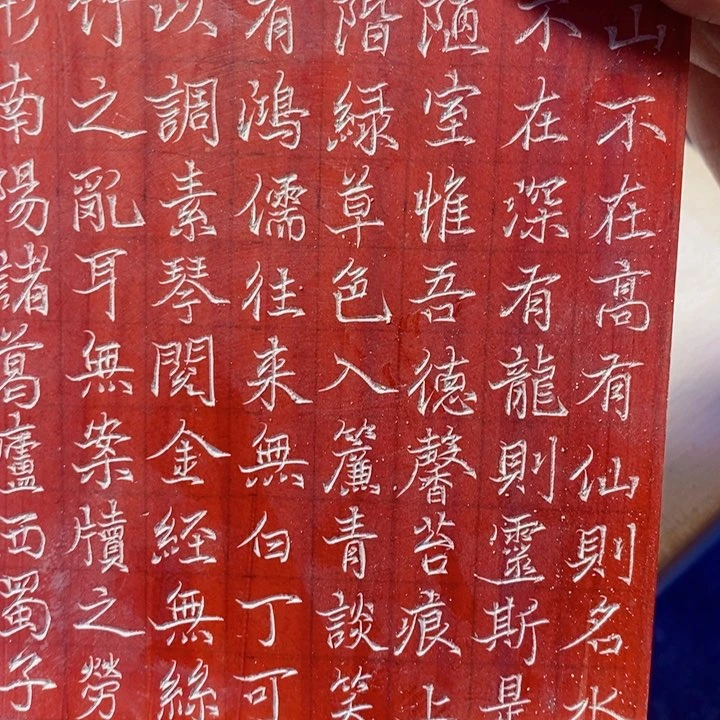 山不在高有仙則名水
不在深有龍則靈斯是
陋室惟吾德馨苔痕上
階緑草色入簾青談笑
有鴻儒往来無白丁可
以調素琴閱金經無絲
竹之亂耳無案牘之勞
形南陽諸葛廬西蜀子